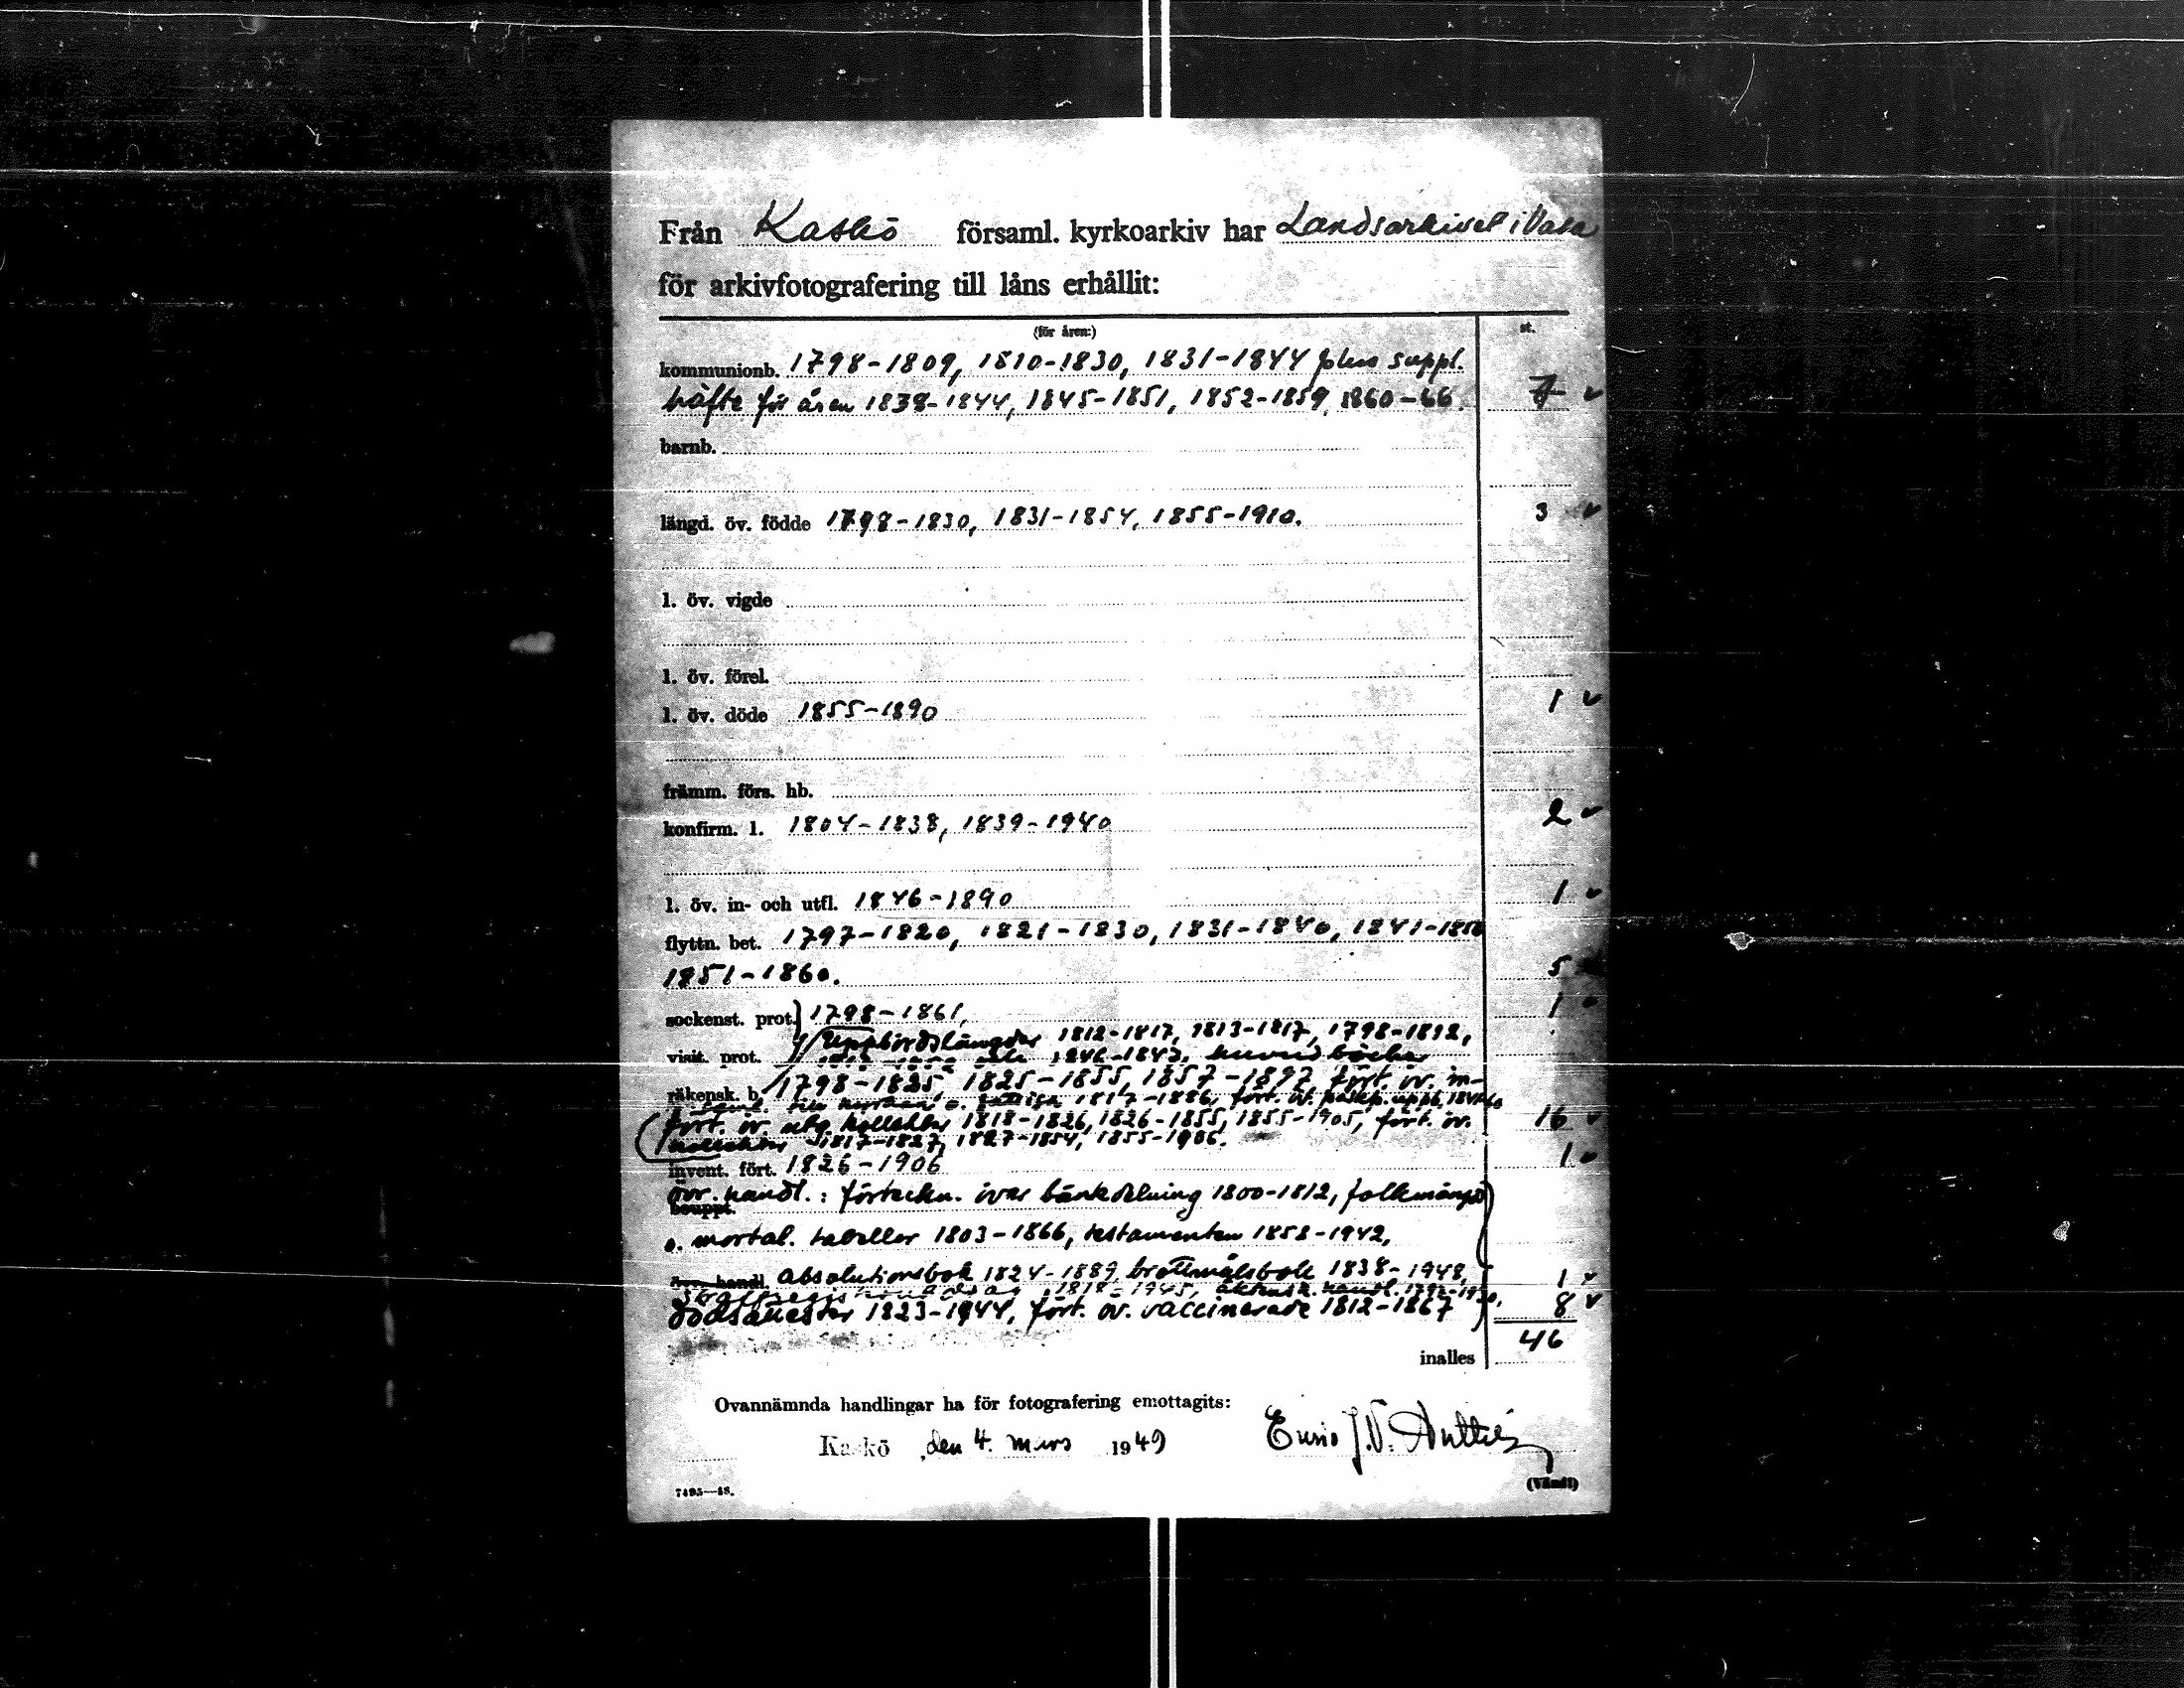 Från Kaskö församl. kyrkoarkiv har Landsarkivet i Vasa
för arkivfotografering till låns erhållit:
(för åren:) st.
kommunionb. 1798-1809, 1810-1830, 1831-1844 plus suppl.
häfte för åren 1838-1844, 1845-1851, 1852-1859, 1860-66. 7
barnb.
längd. öv. födde 1798-1830, 1831-1854, 1855-1910. 3
l. öv. vigde
l. öv. förel.
l. öv. döde 1855-1890 1
främm. förs. hb.
konfirm. l. 1804-1838, 1839-1940 2
l. öv. in- och utfl. 1846-1890 1
flyttn. bet. 1797-1820, 1821-1830, 1831-1840, 1841-1850
1851-1860. 5
sockenst. prot. 1798-1861, 1
Uppbördslängder 1812-1817, 1813-1817, 1798-1892,
visit. prot.
räkensk. b. 1798-1825 1825-1855, 1857-1897 fört. öv. in-
1817-1886, fört. öv.
fört. öv. utg. kollekter 1818-1826, 1826-1855, 1855-1905, fört. öv. 16
kollekter 1817-1827, 1827-1854, 1855-1906.
invent. fört. 1826-1906 1
övr. handl.: förteckn. över bänkdelning 1800-1812, folkmängd
bouppt.
o. mortal. tabeller 1803-1866, testamenten 1858-1942,
övr. handl. absolutionsbok 1824-1889, brottmålsbok 1838-1948, 1
1818-1945, äktensk. handl. 8
dödsattester 1823-1944, fört. öv. vaccinerade 1812-1867
46
inalles
Ovannämnda handlingar ha för fotografering emottagits:
Kaskö, den 4. mars 1949
7495—48. (Vänd!)